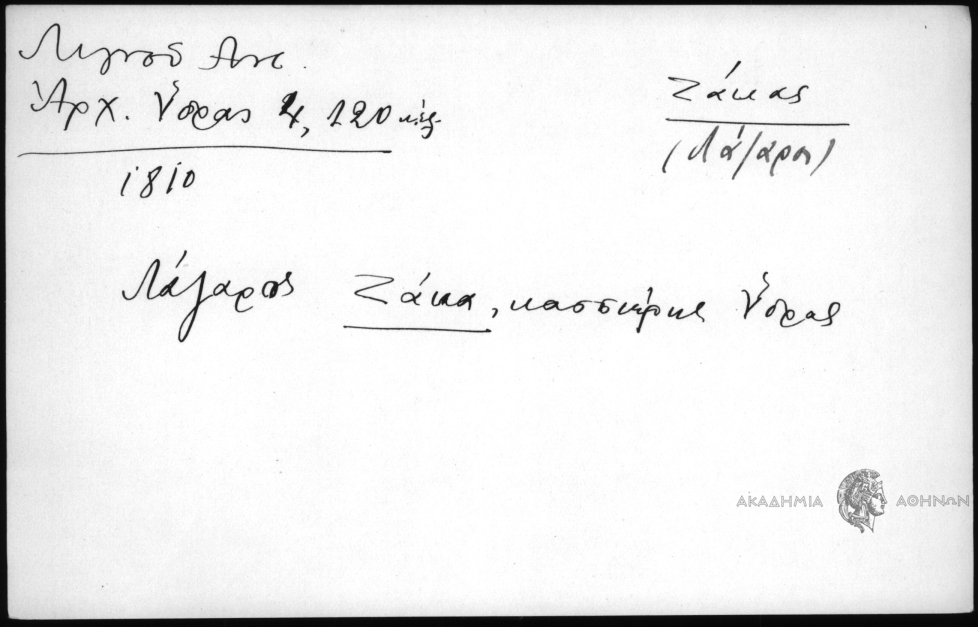 Λιγνού Αντ.
Ἀρχ. Ὕδρας 4, 120 κἑξ.
1810
Ζάκας
(Λάζαρος)
Λάζαρος Ζάκα, κασσιέρης Ὕδρας
ΑΚΑΔΗΜΙΑ ΑΘΗΝΩΝ